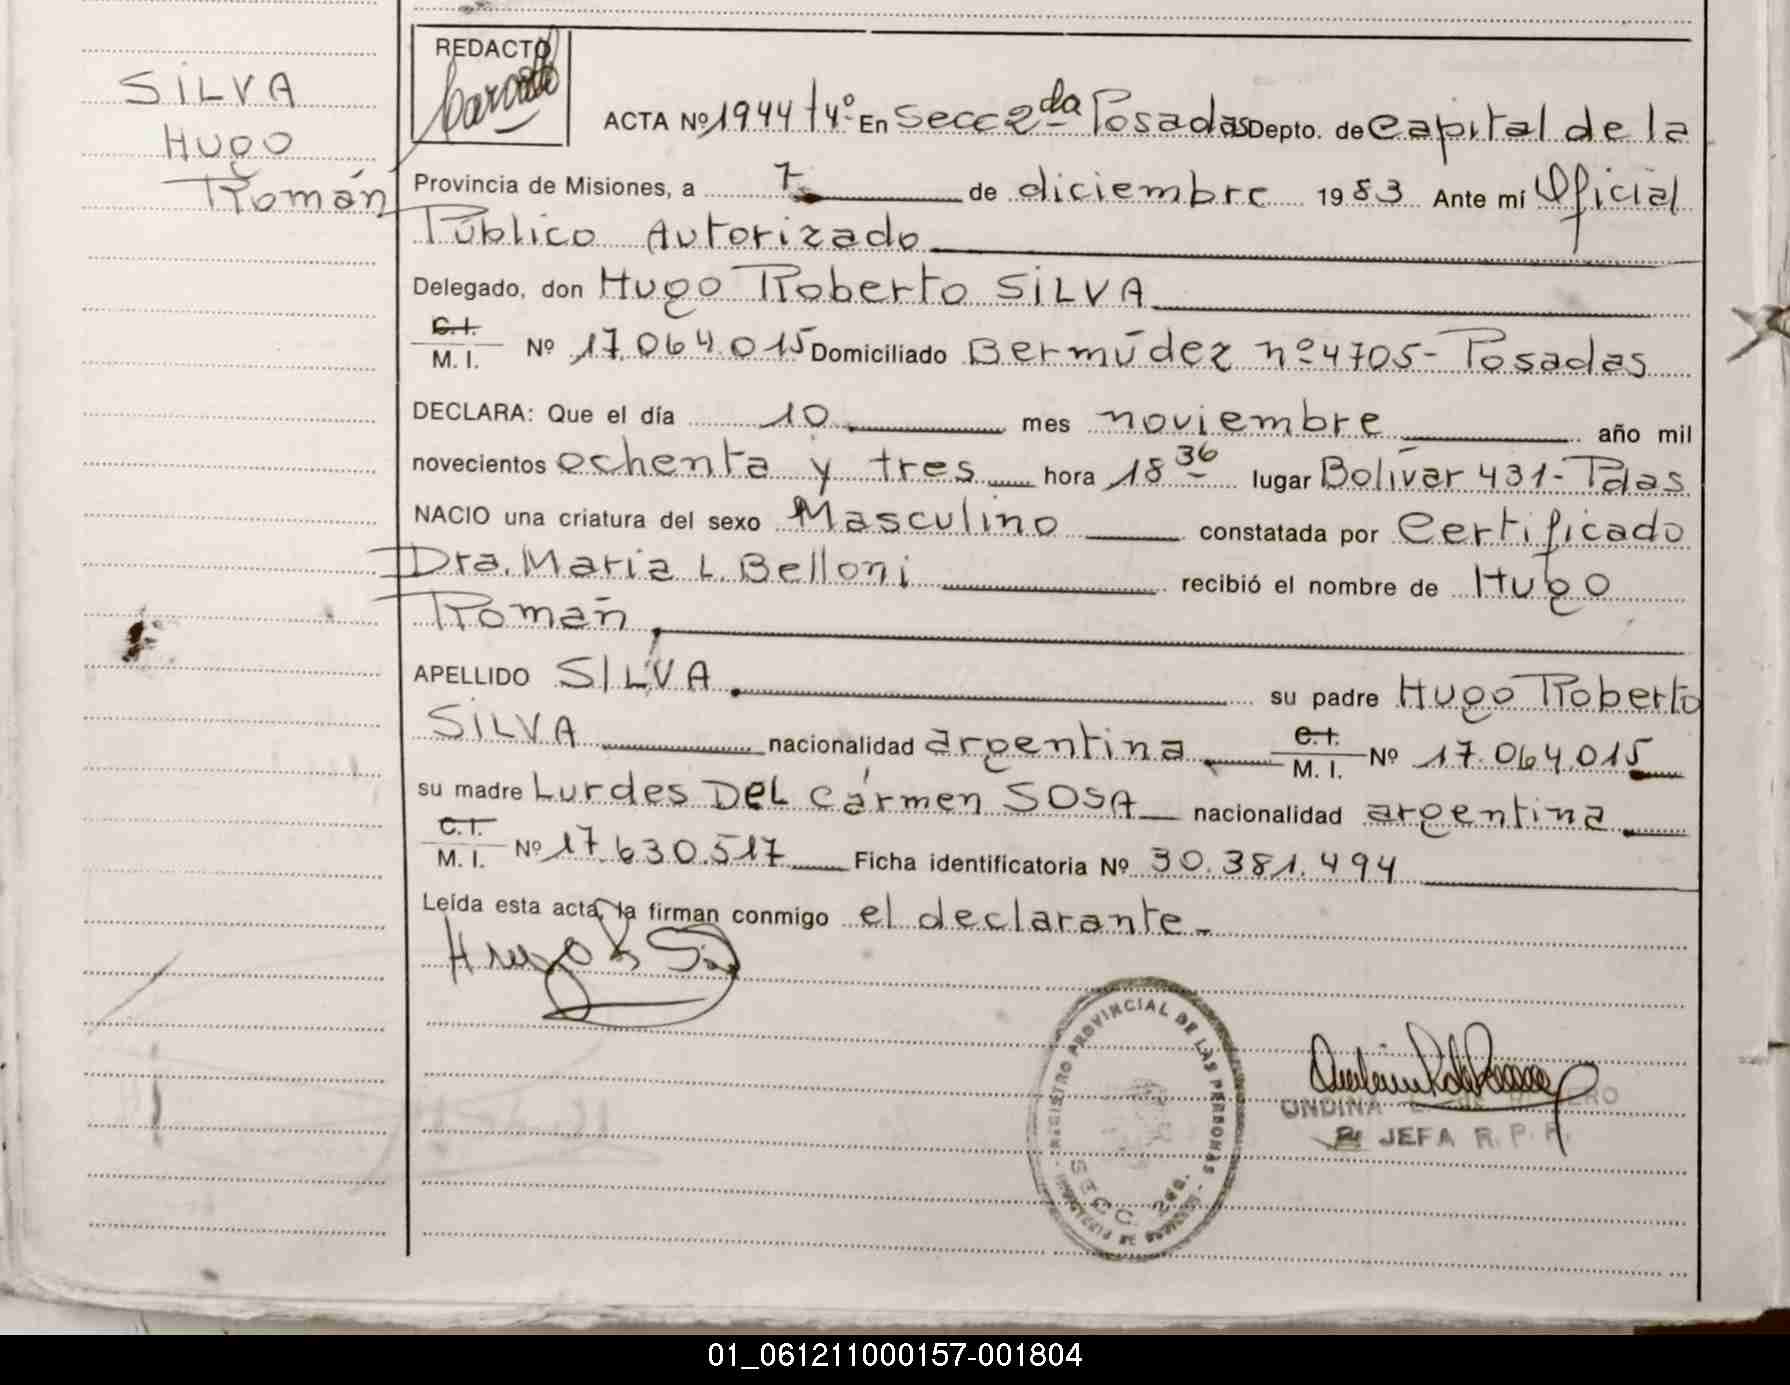 SILVA
Hugo
Román
REDACTO
ACTA Nº 1944 t 4º En Secc 2da Posadas Depto. de Capital de la
Provincia de Misiones, a 7 de diciembre 1983 Ante mí Oficial
Público Autorizado
Delegado, don Hugo Roberto SILVA
C.I.
M. I. Nº 17.064.015 Domiciliado Bermúdez nº 4705- Posadas
DECLARA: Que el día 10 mes noviembre año mil
novecientos ochenta y tres hora 18 36 lugar Bolívar 431- Pdas
NACIO una criatura del sexo Masculino constatada por Certificado
Dra. María L. Belloni recibió el nombre de Hugo
Román
APELLIDO SILVA su padre Hugo Roberto
SILVA nacionalidad argentina C.I.
M. I. Nº 17.064.015
su madre Lurdes DEL Cármen SOSA nacionalidad argentina
C.I.
M. I. Nº 17.630.517 Ficha identificatoria Nº 30.381.494
Leída esta acta, la firman conmigo el declarante.-
REGISTRO PROVINCIAL DE LAS PERSONAS
SECC. 2da.
ONDINA
JEFA R. P. P.
01_061211000157-001804